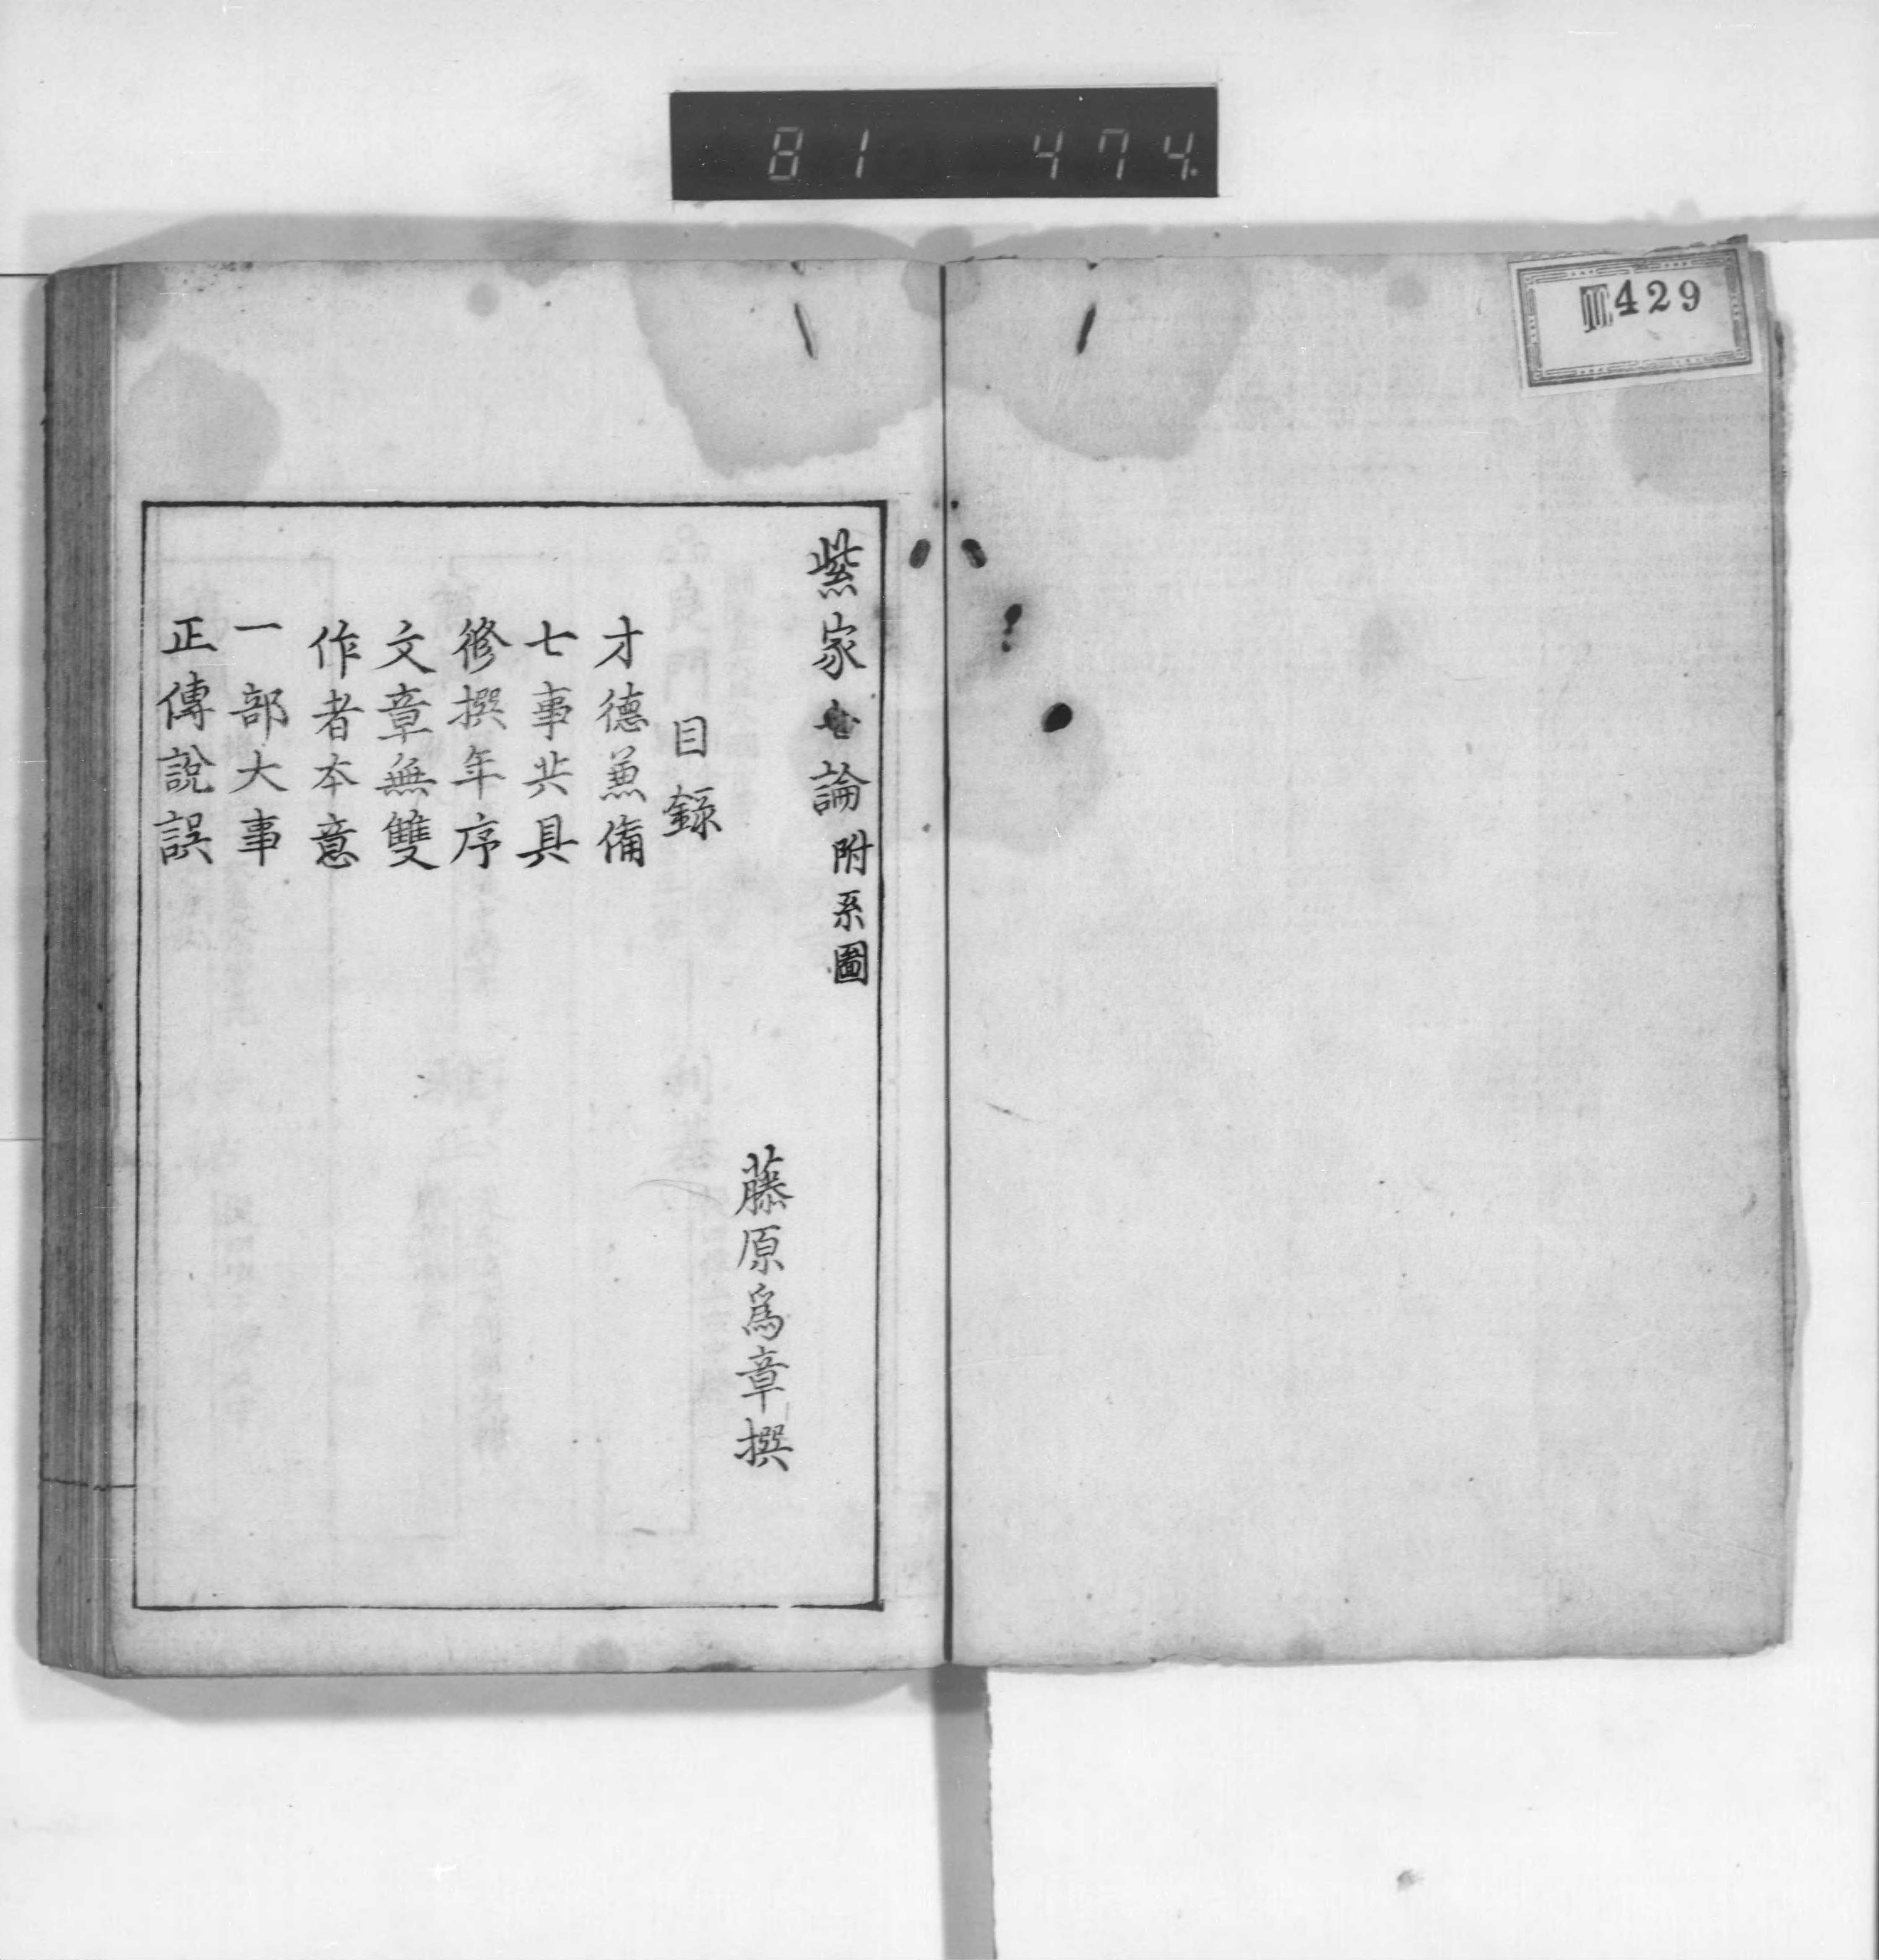 81 474.
429
紫家七論附系圖
藤原爲章撰
目録
才德兼備
七事共具
修撰年序
文章無雙
作者本意
一部大事
正傳説誤